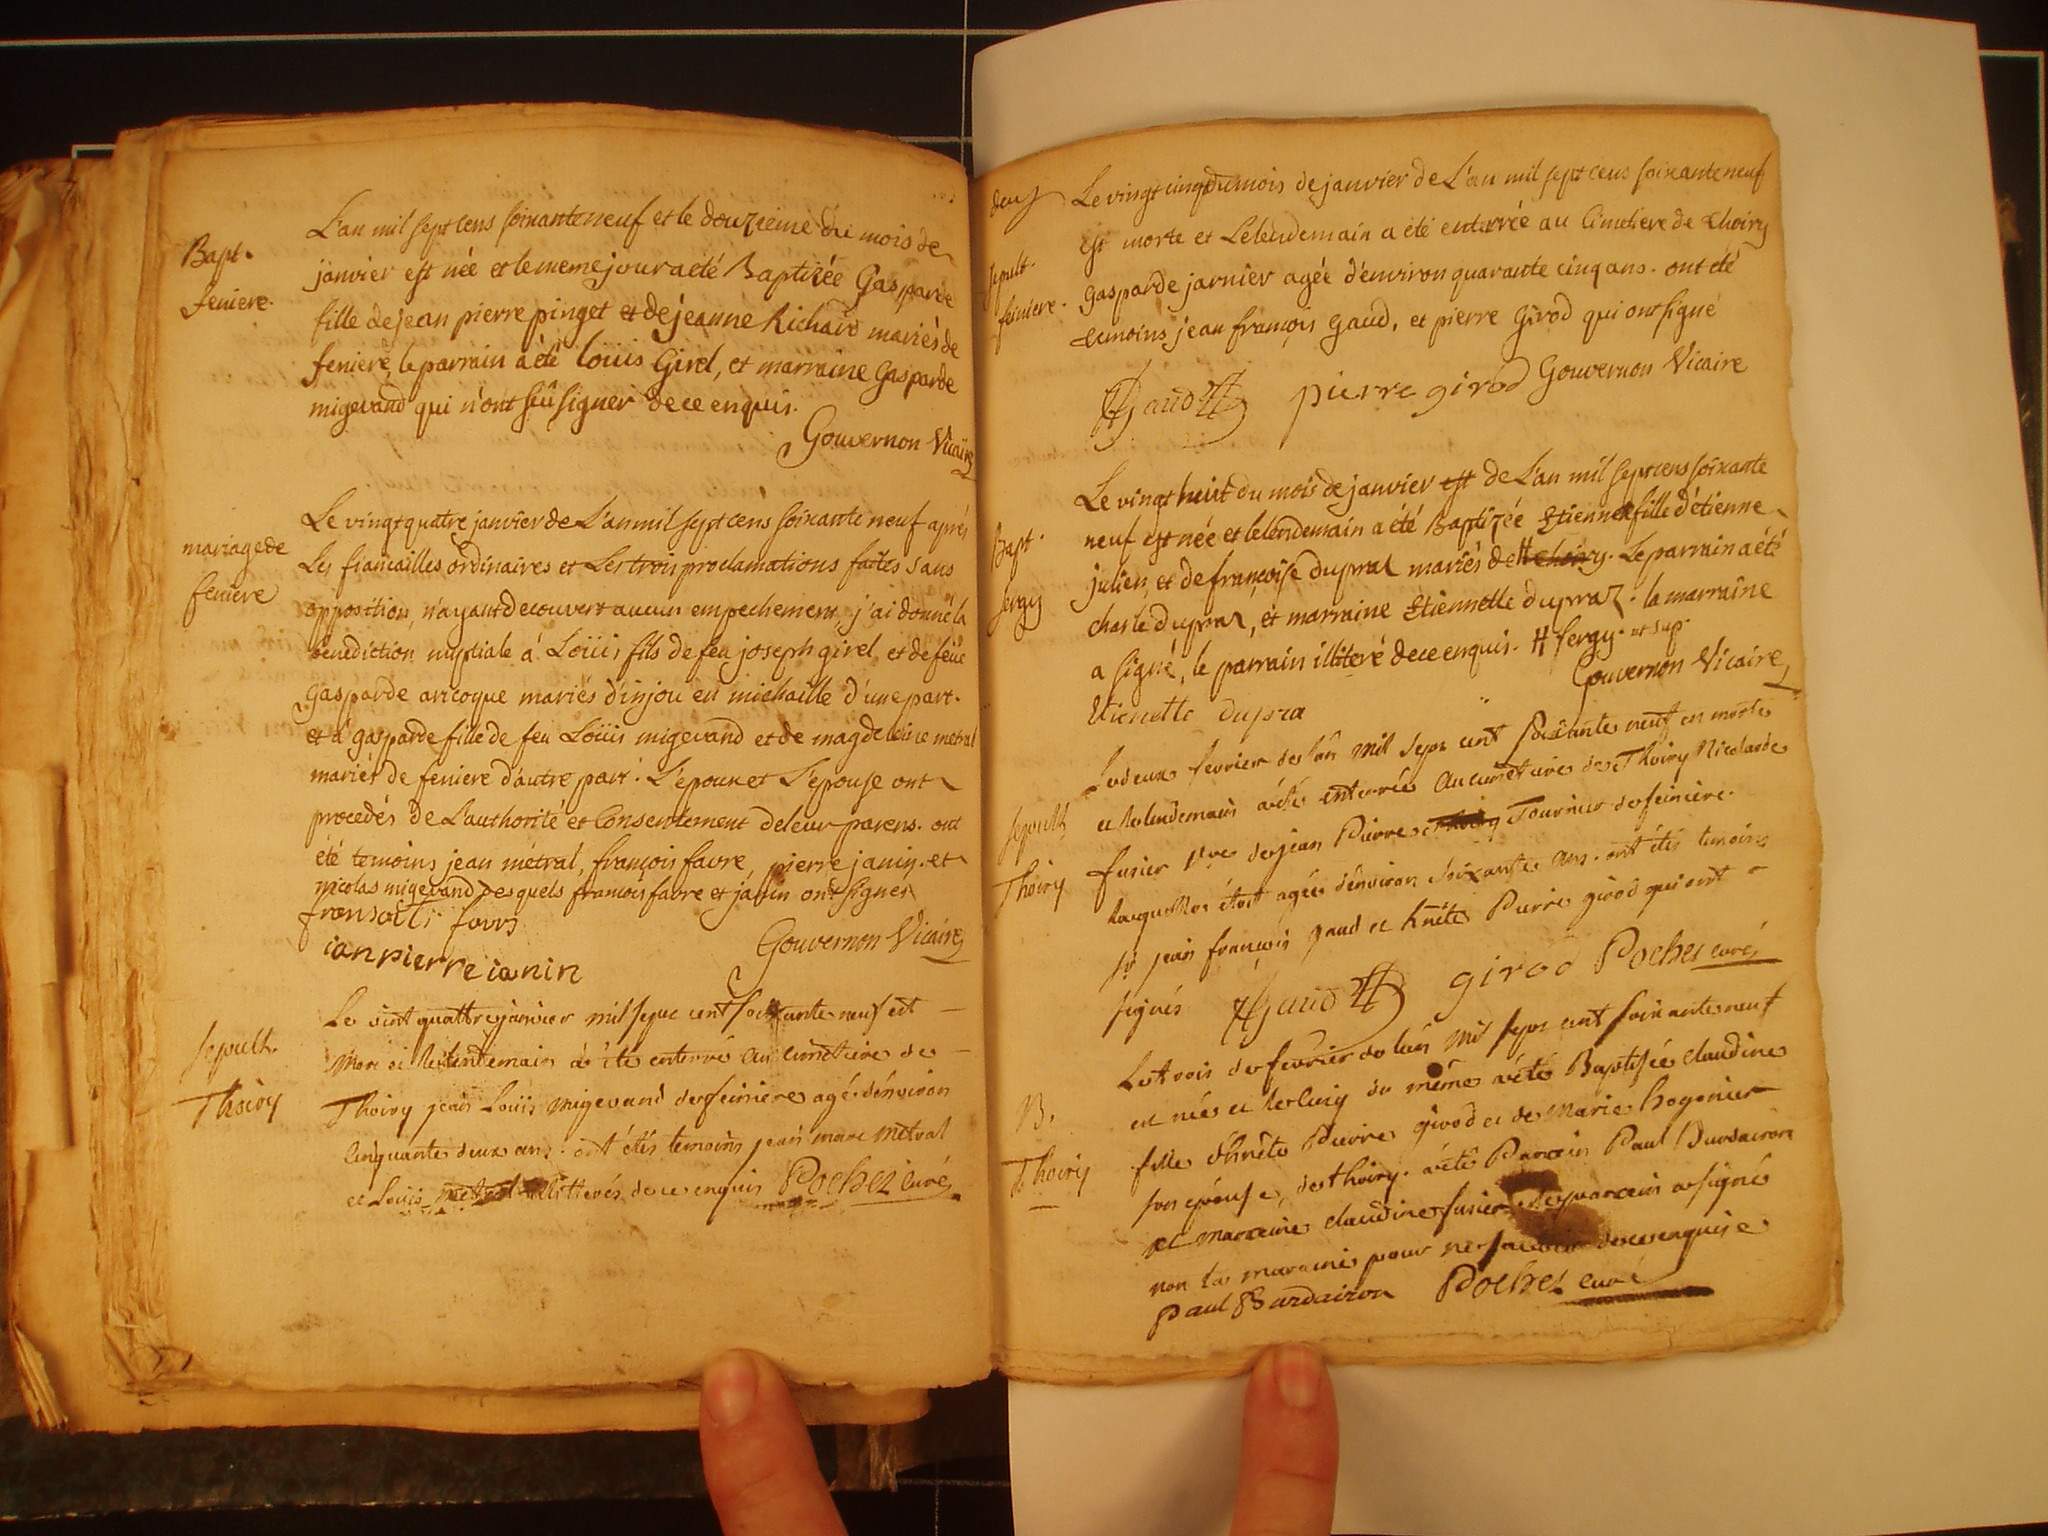 Bapt.
feniere.
L'an mil sept cens soixante neuf et le douzieme du mois de
janvier est née et le meme jour a eté Baptizée Gasparde
fille de jean pierre pinget et de jeanne Richard mariés de
feniere, le parrain a été loüis Girel, et marraine Gasparde
migevand qui n'ont sçû signer de ce enquis.
Gouvernon Vicaire
mariage de
feniere
Le vingt quatre janvier de L'an mil sept cens soixante neuf aprés
Les fiancailles ordinaires et Les trois proclamations faites sans
opposition, n'ayant decouvert aucun empechement, j'ai donné la
benediction nuptiale à Loüis fils de feu joseph girel et de feüe
gasparde aricoque mariés d'injou en michaille d'une part.
et à gasparde fille de feu Loüis migevand et de magdeleine metral
mariés de feniere d'autre part. L'epoux et L'epouse ont
procedés de L'authorité et Consentement de leur parens. ont
été temoins jean métral, françois favre, pierre janin. et
nicolas migevand desquels francois favre et janin ont signer
fransoei favrs
ian pierre ianin
Gouvernon Vicaire
sepult.
Thoiry
Le vint quattre janvier mil sept cent soixante neuf est
mort et le lendemain a été enterré au cimetiere de
Thoiry jean Loüis migevand de feiniere agé d'environ
cinquante deux ans. ont étés temoins jean marc metral
et Loüis metral illiterés de ce enquis Pochet curé
deuf
sepult.
feiniere.
Le vingt cinq du mois de janvier de L'an mil sept cens soixante neuf
est morte et Le lendemain a été enterrée au Cimetiere de thoiry
gasparde jarnier agée d'environ quarante cinq ans. ont été
temoins jean françois gaud, et pierre Girod qui ont signé
Gaud pierre girod Gouvernon Vicaire
Bapt.
sergy
Le vingt huit du mois de janvier est de L'an mil sept cens soixante
neuf est née et le lendemain a été Baptizée Etienne fille d'étienne
julien, et de françoise dupraz mariés de # thoiry. Le parrain a été
charle dupraz, et marraine Etiennette dupraz. la marraine
a signé, le parrain illiteré de ce enquis. # sergy. ut sup.
Gouvernon Vicaire
tienette dupra
sepult
Thoiry
Le deux fevrier de l'an mil sept cent soixante neuf en morte
et le lendemain a été enterrée au cimetiere de Thoiry Nicolarde
fusier v.ve de jean Pierre Thoiry Tournier de feiniere.
laquelle étoit agée d'environ soixante ans. ont étés temoins
sr jean françois gaud et hnête Pierre girod qui ont
signés Gaud girod Pochet curé
B.
Thoiry
Le trois de fevrier de l'an mil sept cent soixante neuf
est née et le cinq du même a été Baptisée claudine
fille d'hnête Pierre girod et de Marie hogonier
son epouse, de thoiry. a été Parrein Paul Burdairon
et marreine claudine fusier. le parrein a signé
non la marreine pour ne scavoir de ce enquise.
Paul Burdairon Pochet curé